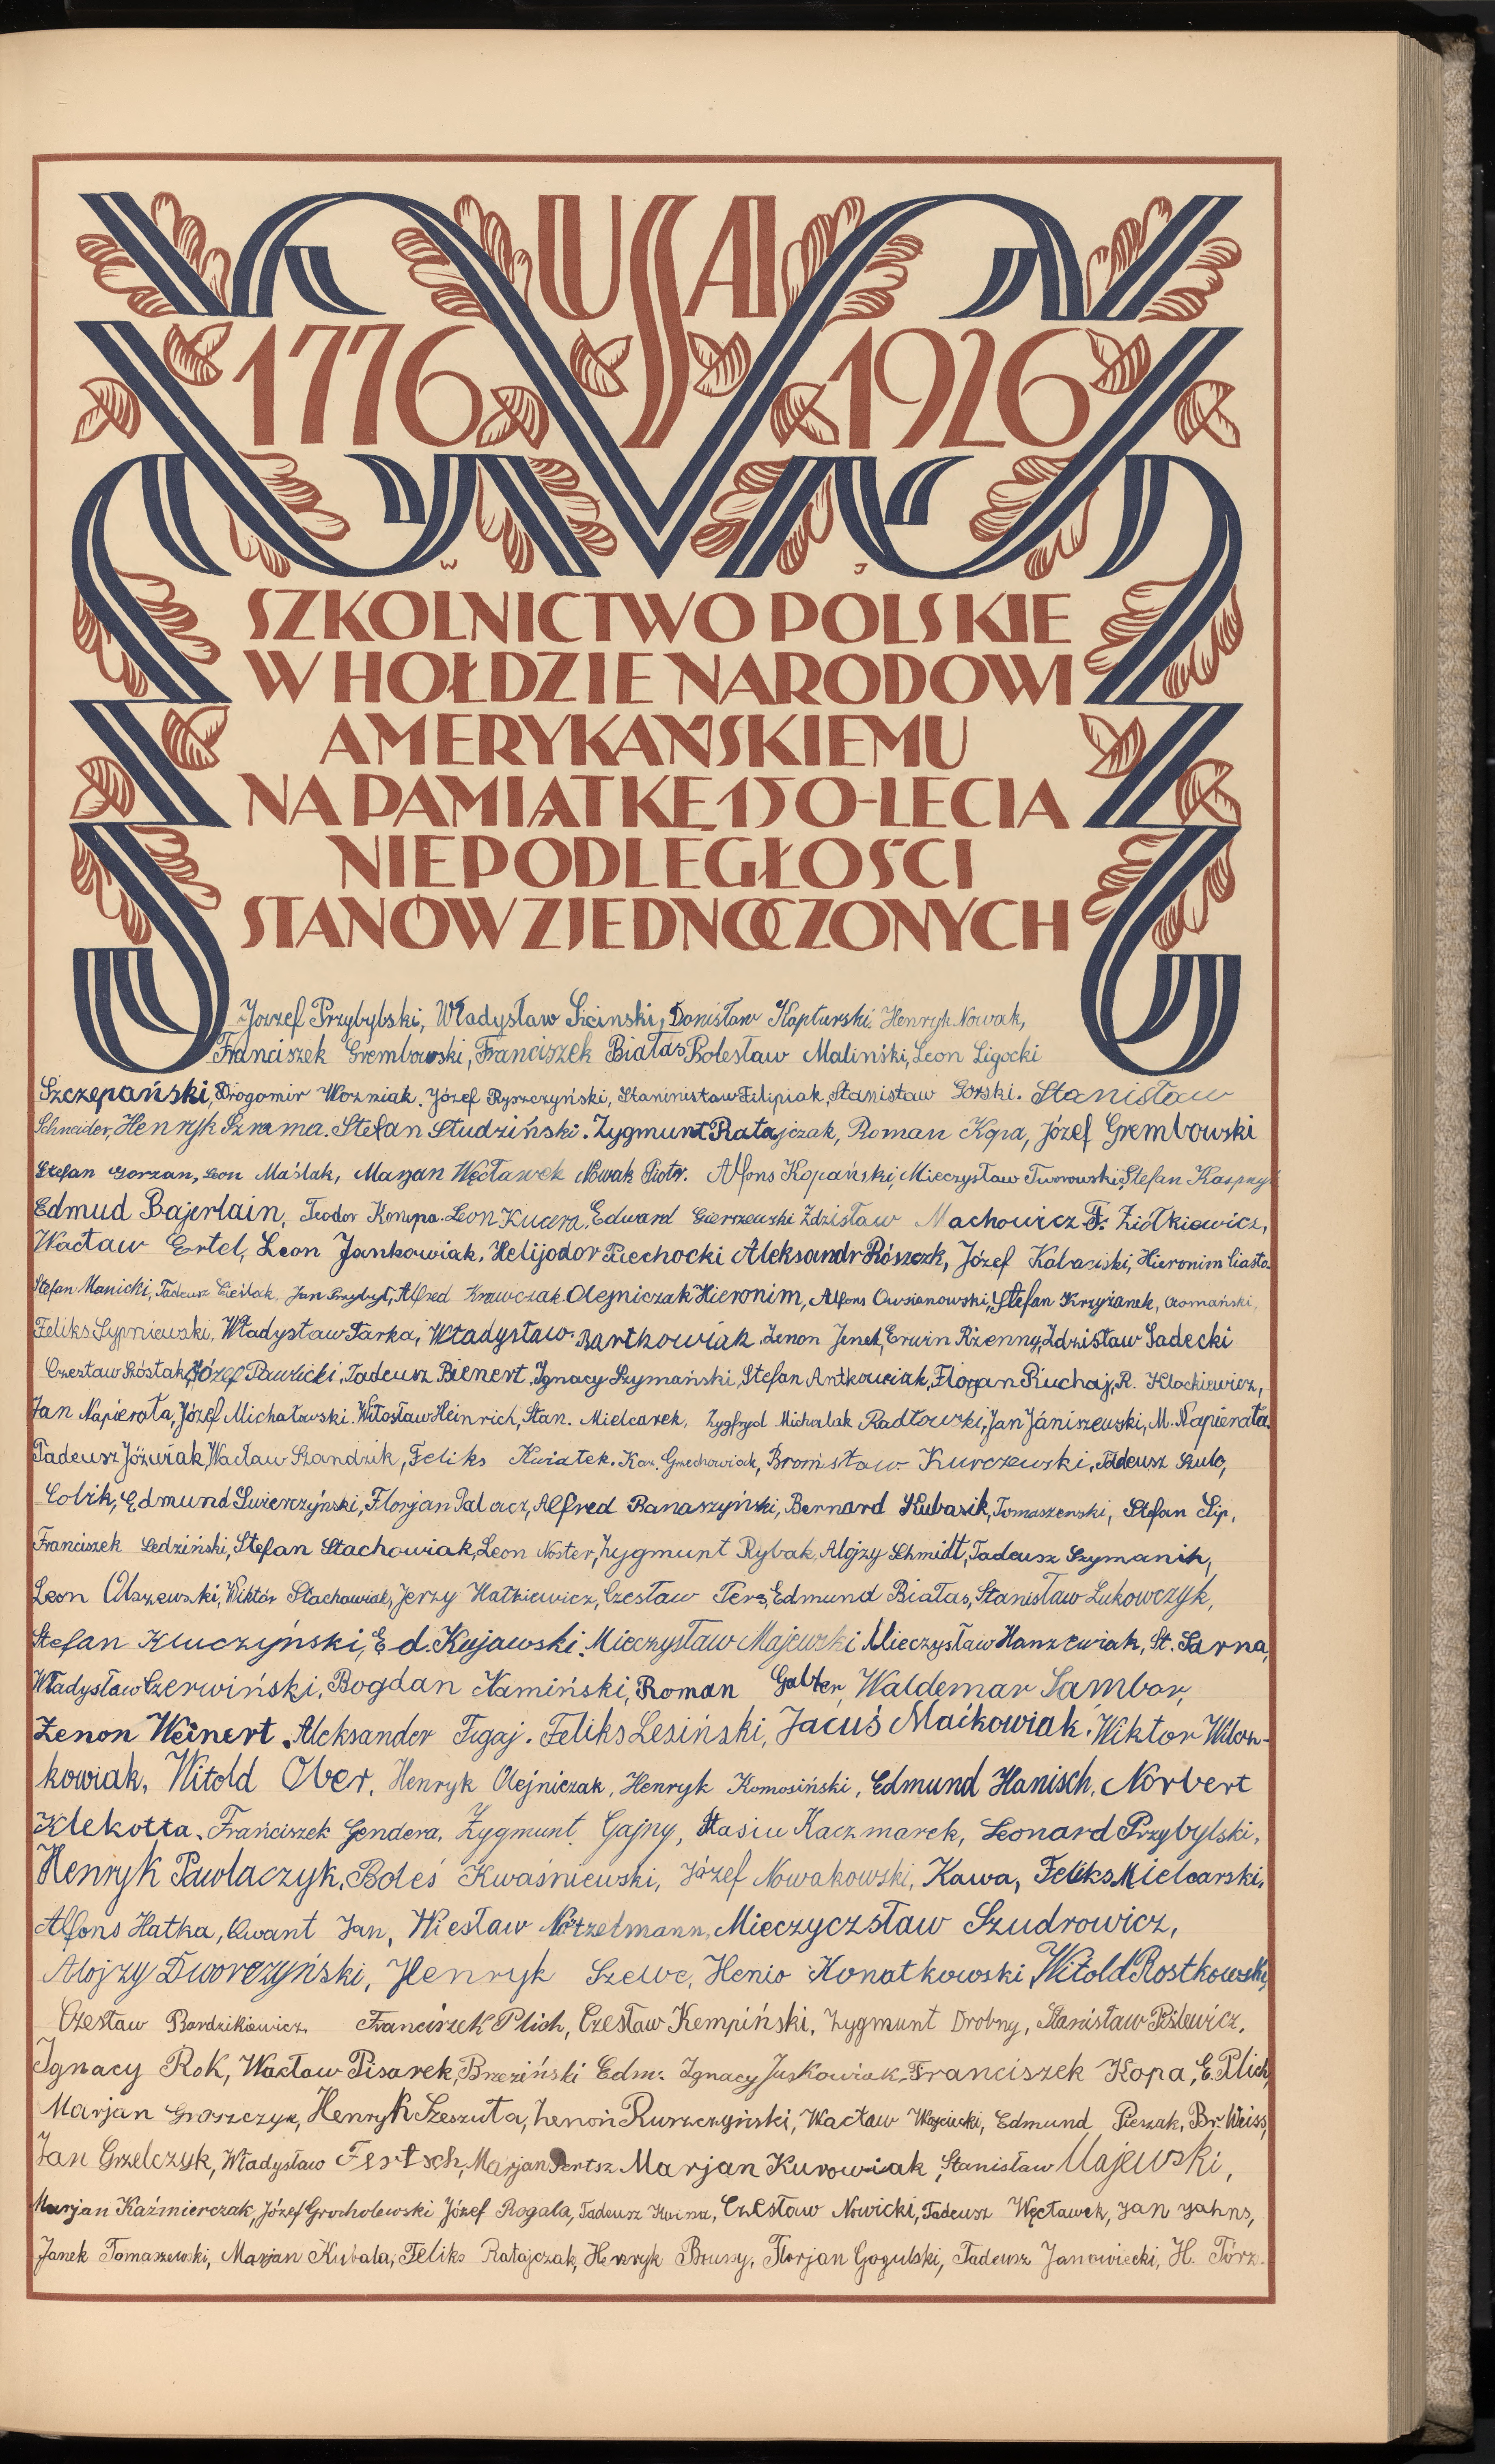 USA
1776 1926
W J
SZKOLNICTWO POLSKIE
W HOŁDZIE NARODOWI
AMERYKAŃSKIEMU
NA PAMIĄTKĘ 150-LECIA
NIEPODLEGŁOŚCI
STANÓW ZJEDNOCZONYCH
Józzef Przybylski, Władysław Siciński, Donisław Kapturski Henryk Nowak,
Franciszek Grembowski, Franciszek Białas Bolesław Maliński, Leon Ligocki
Szczepański, Drogomir Woźniak. Józef Ryszczyński, Staninisław Filipiak, Stanisław Górski. Stanisław
Schneider, Henryk Szrama. Stefan Studziński. Zygmunt Ratajczak, Roman Kopa, Józef Grembowski
Stefan Gorzan, Leon Maślak, Maryan Węcławek Nowak Piotr. Alfons Kopański, Mieczysław Tworowski, Stefan Kaspry
Edmud Bajerlain, Teodor Konupa. Leon Kucera, Edward Gierszewski Zdzisław Machowicz F. Ziółkiewicz,
Wacław Ertel, Leon Jankowiak, Helijodor Piechocki Aleksandr Rószczk, Józef Kabaciski, Hieronim Ciasto.
Stefan Manicki, Tadeusz Cieślak, Jan Przybył, Alfred Krawczak Olejniczak Hieronim, Alfons Owsianowski, Stefan Krzyżanek,
Feliks Sypniewski, Władysław Tarka, Władysław Bartkowiak. Zenon Jenek, Erwin Rżenny, Zdzisław Sadecki
Czesław Szóstak, Józef Pawlicki, Tadeusz Bienert, Ignacy Szymański, Stefan Antkowiak, Florjan Piuchaj, R. Klockiewicz,
Jan Napierała, Józef Michałowski. Witosław Heinrich, Stan. Mielcarek, Zygfryd Michalak Radłowski, Jan Jániszewski, M. Napierała.
Tadeusz Jóźwiak, Wacław Szandzik, Feliks Kwiatek. Kaz. Grzechowiak, Bronisław Kurczewski, Tadeusz Szulc,
Cobik, Edmund Świerczyński, Florjan Palacz, Alfred Banaszyński, Bernard Kubasik, Tomaszewski, Stefan Lip,
Franciszek Ledziński, Stefan Stachowiak, Leon Noster, Zygmunt Rybak, Alojzy Schmidt, Tadeusz Szymanik,
Leon Olszewski, Wiktór Stachowiak, Jerzy Hatkiewicz, Czesław Perz, Edmund Białas, Stanisław Lukowczyk,
Stefan Kluczyński, Ed. Kujawski. Mieczysław Majewski Mieczysław Hanzewiak, St. Sarna,
Władysław Czerwiński, Bogdan Namiński, Roman Galter, Waldemar Sambor,
Zenon Weinert. Aleksander Figaj. Feliks Lesiński, Jacuś Maćkowiak, Wiktor Wilcz-
kowiak, Witold Ober, Henryk Olejniczak, Henryk Komosiński, Edmund Hanisch, Norbert
Klekotta, Franciszek Gendera, Zygmunt Gajny, Stasiu Kaczmarek, Leonard Przybylski,
Henryk Pawlaczyk, Boleś Kwaśniewski, Józef Nowakowski, Kawa, Feliks Mielcarski,
Alfons Hatka, Kwant Jan, Wiesław Nötzelmann, Mieczyczsław Szudrowicz,
Alojzy Dworczyński, Henryk Szewc, Henio Konatkowski Witold Rostkowski,
Czesław Bardzikiewicz, Franciszek Plich, Czesław Kempiński, Zygmunt Drobny, Stanisław Pislewicz,
Ignacy Rok, Wacław Pisarek, Brzeziński Edm. Ignacy Juskowiak, Franciszek Kopa, E. Plich,
Marjan Groszczyk, Henryk Szeszuta, Zenoń Ruszczyński, Wacław Wojciecki, Edmund Pieszak, Br. Weiss,
Jan Grzelczyk, Władysław Fertsch, Marjan Pertsz Marjan Kurowiak, Stanisław Majewski,
Marjan Kaźmierczak, Józef Grocholewski Józef Rogala, Tadeusz Kwina, Czesław Nowicki, Tadeusz Węcławek, Jan Jahns,
Janek Tomaszewski, Marjan Kubala, Feliks Ratajczak, Henryk Brussy, Florjan Gogulski, Tadeusz Janowiecki, H. Tórz.